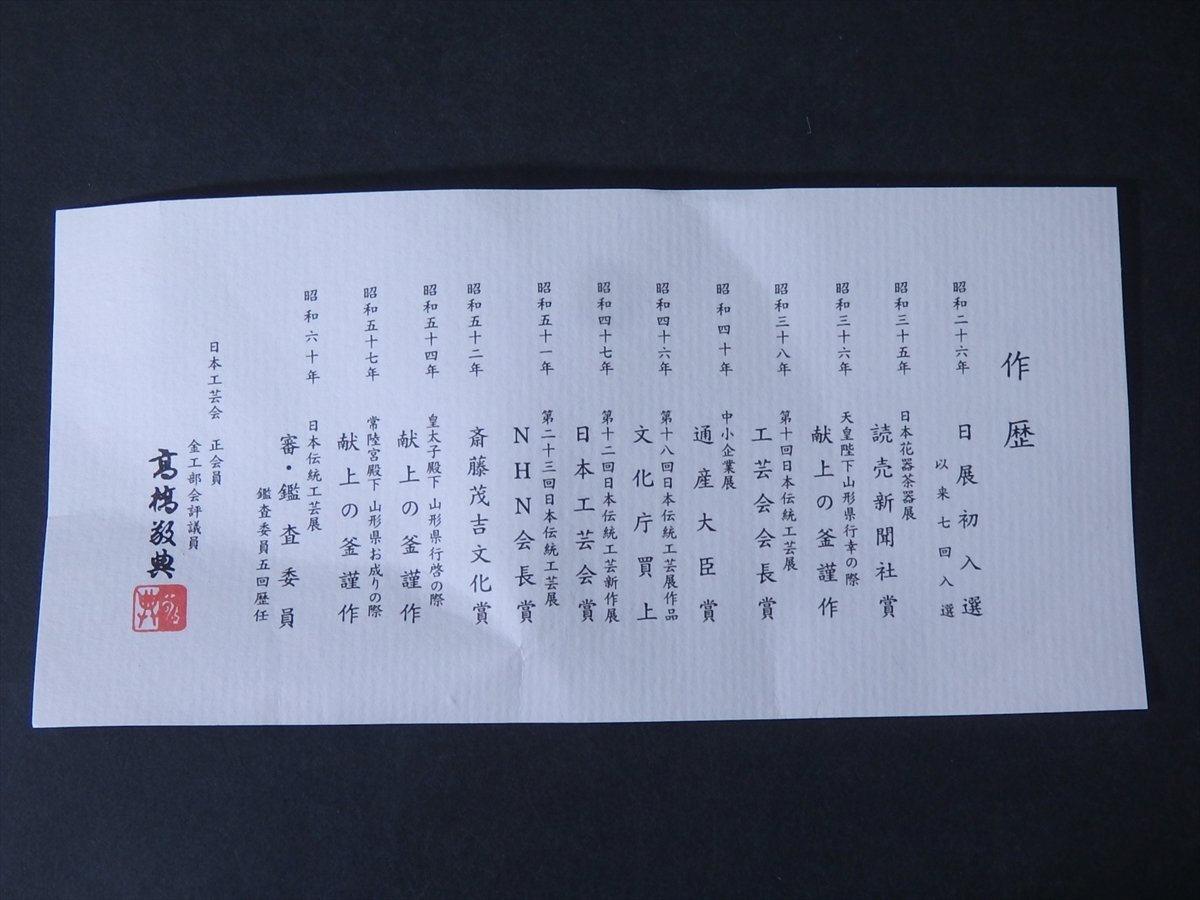 作歴
昭和二十六年 日展初入選
以来七回入選
昭和三十五年 日本花器茶器展
読売新聞社賞
昭和三十六年 天皇陛下山形県行幸の際
献上の釜謹作
昭和三十八年 第十回日本伝統工芸展
工芸会会長賞
昭和四十年 中小企業展
通産大臣賞
昭和四十六年 第十八回日本伝統工芸展作品
文化庁買上
昭和四十七年 第十二回日本伝統工芸新作展
日本工芸会賞
昭和五十一年 第二十三回日本伝統工芸展
NHN会長賞
昭和五十二年 斎藤茂吉文化賞
昭和五十四年 皇太子殿下 山形県行啓の際
献上の釜謹作
昭和五十七年 常陸宮殿下 山形県お成りの際
献上の釜謹作
昭和六十年 日本伝統工芸展
審・鑑査委員
鑑査委員五回歴任
日本工芸会 正会員
金工部会評議員
高橋敬典